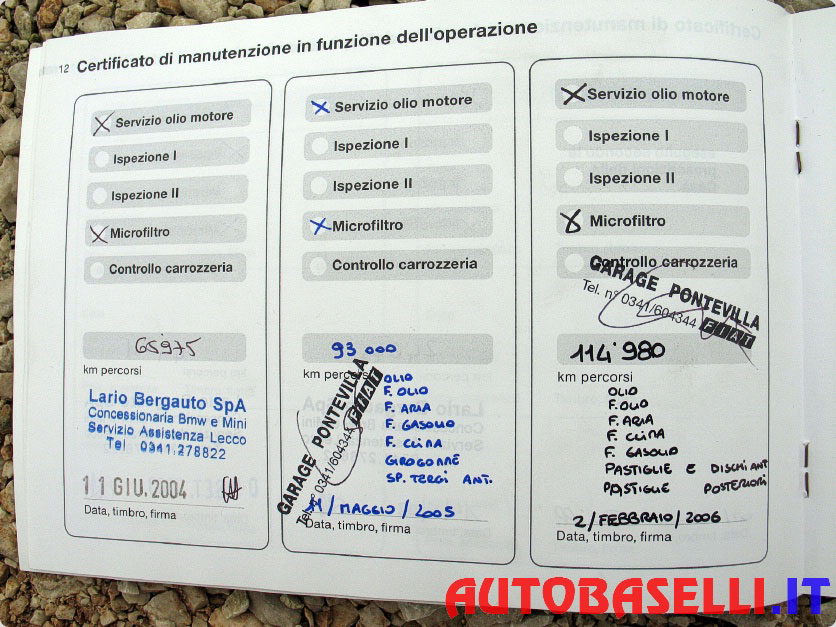 12 Certificato di manutenzione in funzione dell'operazione
Servizio olio motore
Ispezione I
Ispezione II
Microfiltro
Controllo carrozzeria
65975
km percorsi
Lario Bergauto SpA
Concessionaria Bmw e Mini
Servizio Assistenza Lecco
Tel 0341.278822
11 GIU. 2004
Data, timbro, firma
Servizio olio motore
Ispezione I
Ispezione II
Microfiltro
Controllo carrozzeria
93 000
km percorsi
OLIO
F. OLIO
F. ARIA
F. GASOLIO
F. CLIMA
GIROGOMME
SP. TERGI ANT.
GARAGE PONTEVILLA
Tel. n° 0341/604344 FIAT
/ MAGGIO / 2005
Data, timbro, firma
Servizio olio motore
Ispezione I
Ispezione II
Microfiltro
Controllo carrozzeria
GARAGE PONTEVILLA
Tel. n° 0341/604344 FIAT
114 980
km percorsi
OLIO
F. OLIO
F. ARIA
F. CLIMA
F. GASOLIO
PASTIGLIE E DISCHI ANT
PASTIGLIE POSTERIORI
2 / FEBBRAIO / 2006
Data, timbro, firma
AUTOBASELLI.IT